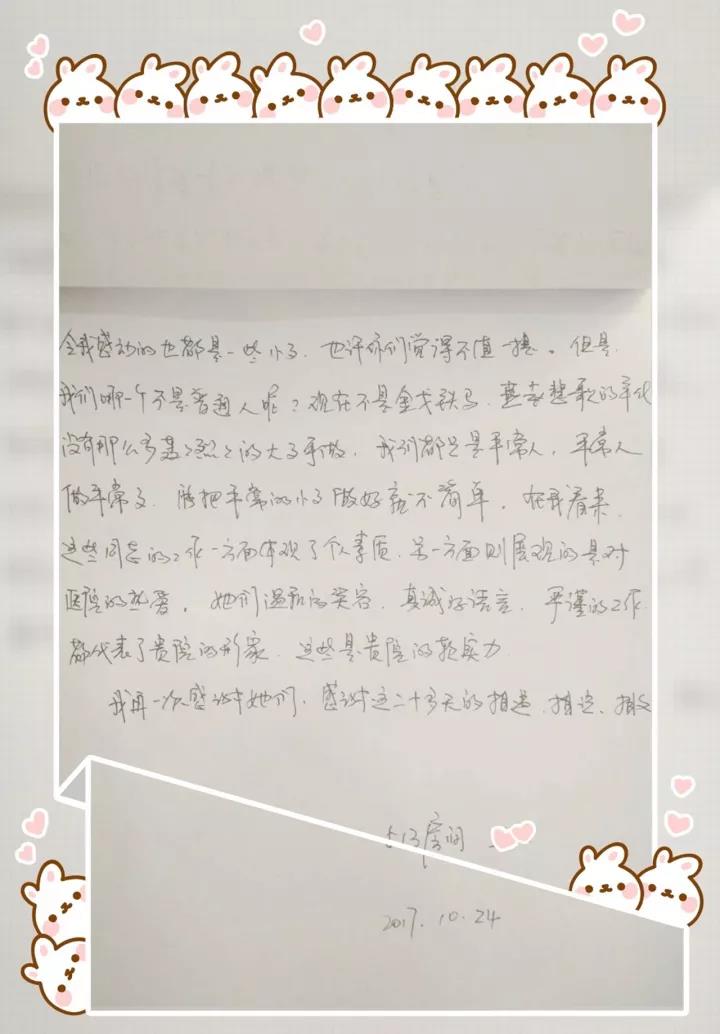 令我感动的也都是一些小事，也许你们觉得不值一提。但是，
我们哪一个不是普通人呢？现在不是金戈铁马、燕赵悲歌的年代
没有那么多轰轰烈烈的大事可做，我们都只是平常人，平常人
做平常事，能把平常的小事做好就不简单。在我看来，
这些同志的工作一方面体现了个人素质，另一方面则展现的是对
医院的热爱。她们温和的笑容，真诚的语言，严谨的工作，
都代表了贵院的形象，这些是贵院的软实力
我再一次感谢她们，感谢这二十多天的相遇、相识、相
房间
2017.10.24